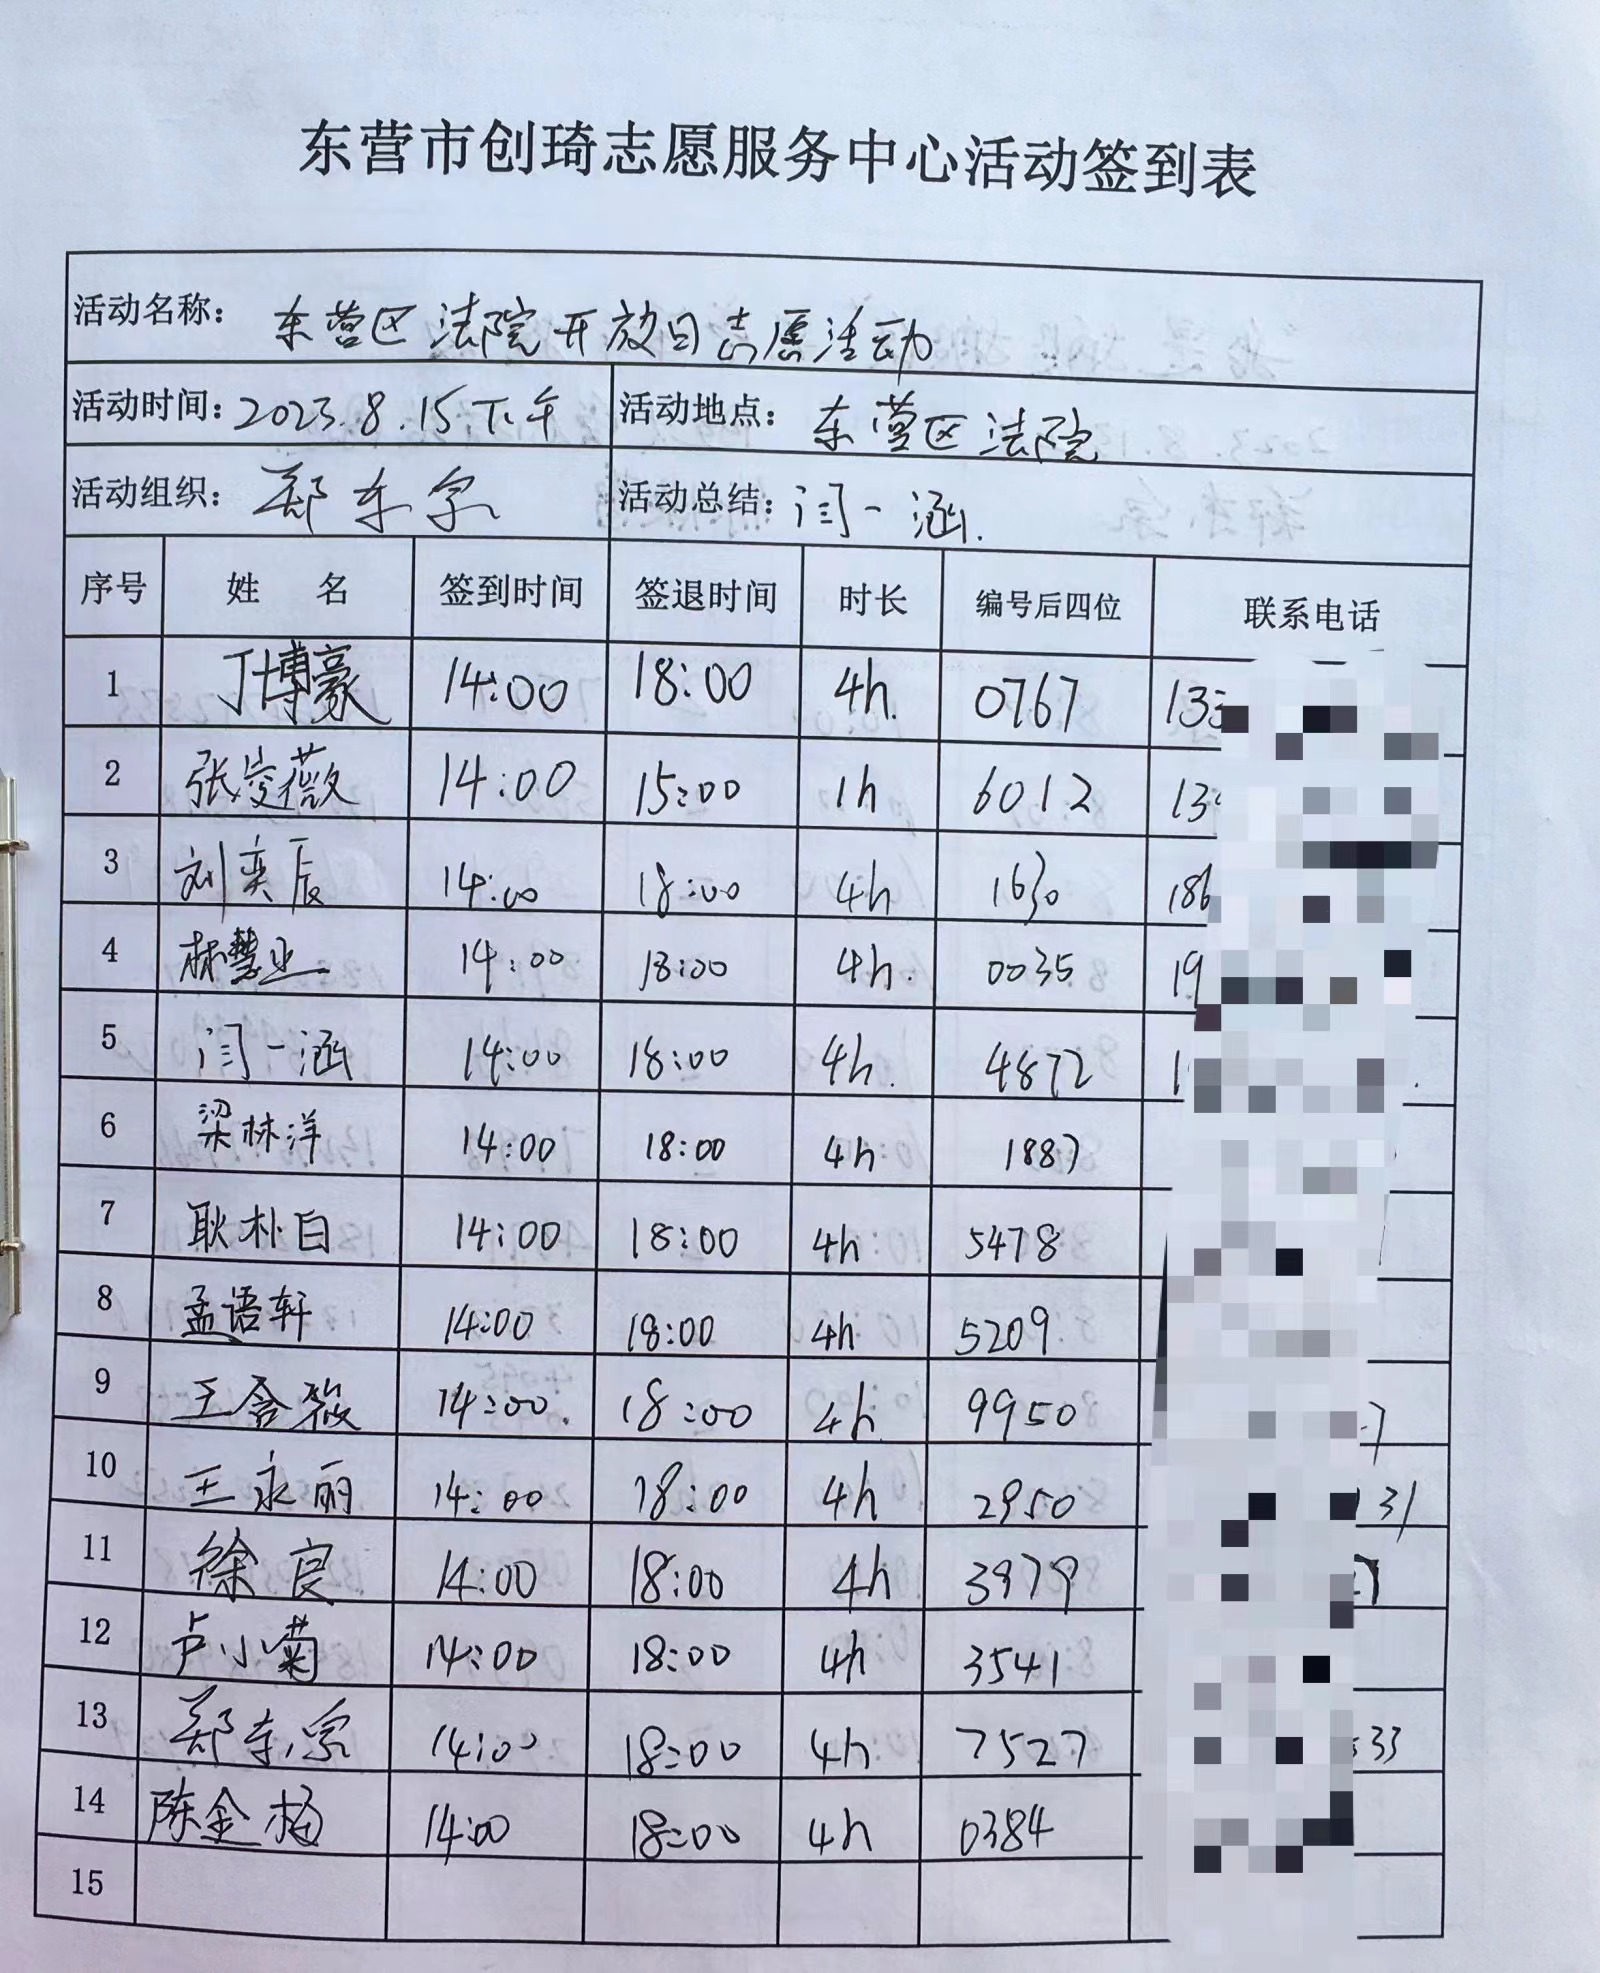 东营市创琦志愿服务中心活动签到表
活动名称: 东营区法院开放日志愿活动
活动时间: 2023.8.15下午 活动地点: 东营区法院
活动组织: 郑东字 活动总结: 闫一涵.
序号 姓 名 签到时间 签退时间 时长 编号后四位 联系电话
1 丁博豪 14:00 18:00 4h. 0767 133
2 张凌薇 14:00 15:00 1h 6012 13
3 刘奕辰 14:00 18:00 4h 1630 186
4 林慧业 14:00 18:00 4h. 0035 19
5 闫一涵 14:00 18:00 4h. 4872 1
6 梁林洋 14:00 18:00 4h 1887
7 耿朴白 14:00 18:00 4h 5478
8 孟语轩 14:00 18:00 4h 5209.
9 王含筱 14:00. 18:00 4h 9950 7
10 王永丽 14:00 18:00 4h 2950 31
11 徐良 14:00 18:00 4h 3979
12 卢小菊 14:00 18:00 4h 3541
13 郑东字 14:00 18:00 4h 7527 33
14 陈金梅 14:00 18:00 4h 0384
15